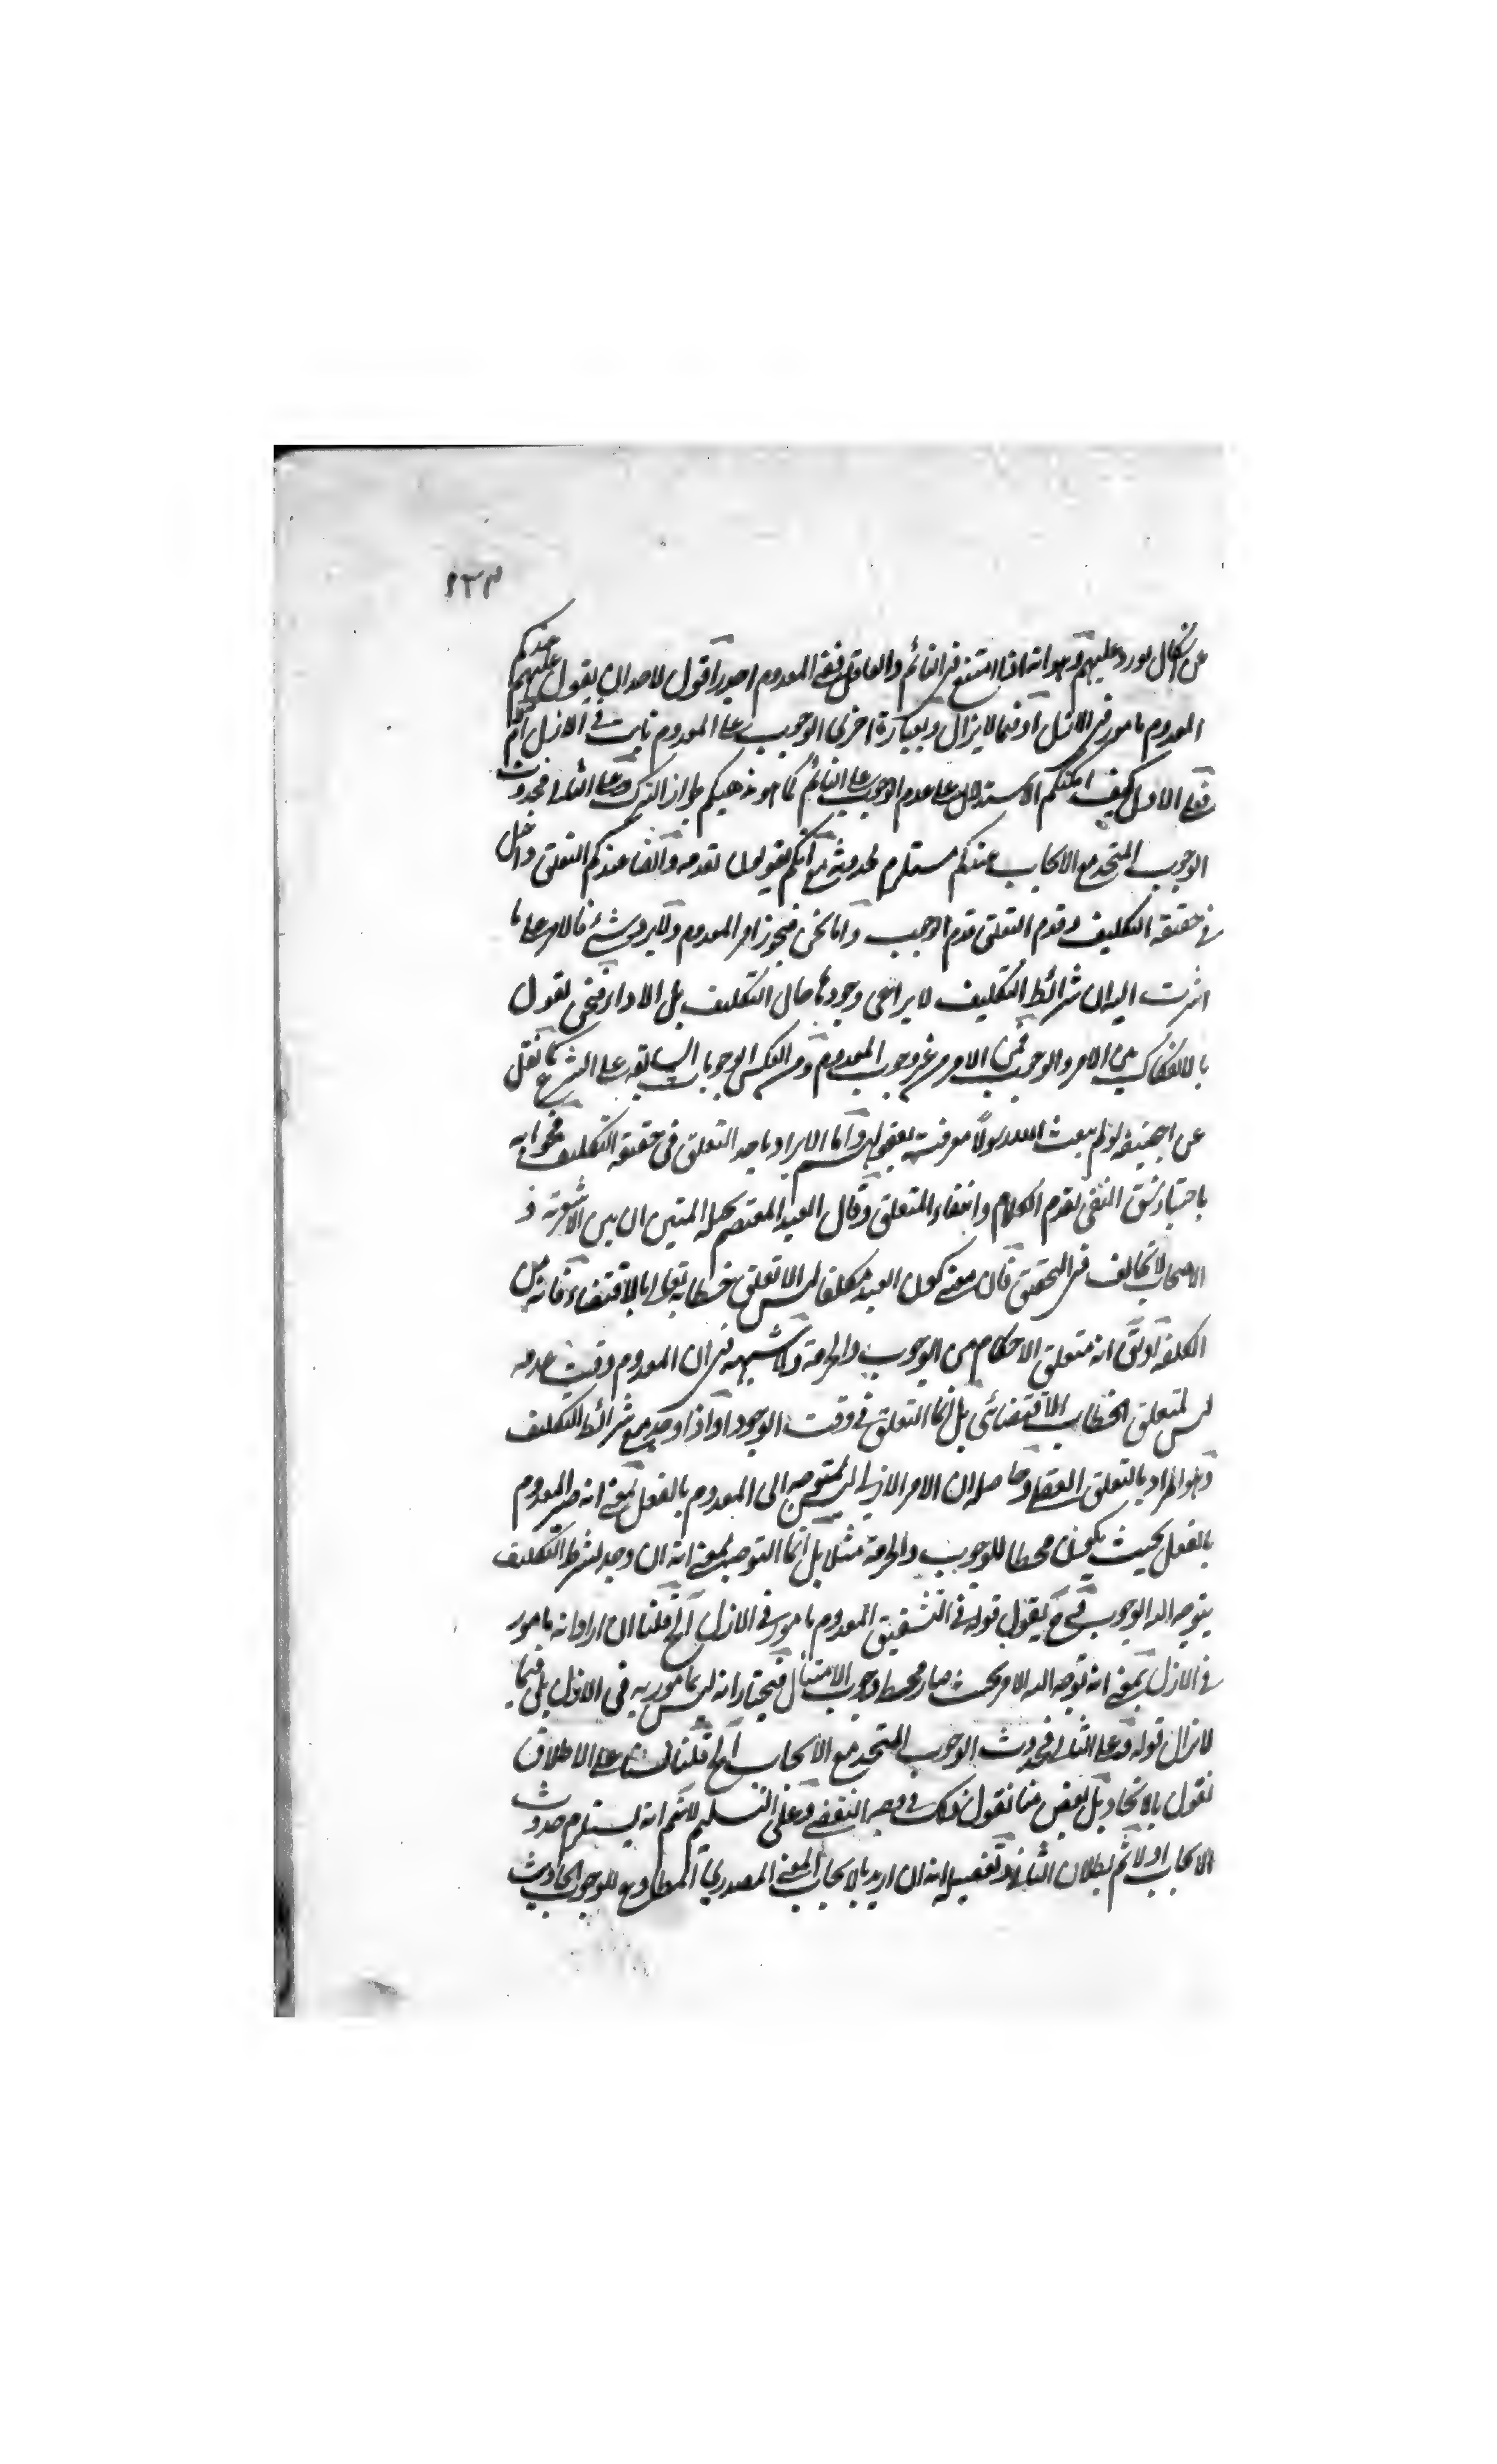 ١٢٣
عن اشكال يورد عليهم وهو انه اذا امتنع في النائم والغافل ففي المعدوم اجدر اقول لاحد ان يقول عليهم عندكم
المعدوم مامور في الازل او فيما لا يزال وبعبارة اخرى الوجوب على المعدوم ثابت في الازل ام
فعلى الاول كيف امكنكم الاستدلال على عدم الوجوب على النائم كما هو مذهبكم بجواز الترك وعلى الثاني فحدوث
الوجوب المتحد مع الايجاب عندكم مستلزم لحدوثه مع انكم تقولون بقدمه وايضا عندكم التعلق داخل
في حقيقة التكليف وقدم التعلق قدم الوجوب واما نحن فنجوز امر المعدوم ولا يرد شئ فالامر على ما
اشرت اليه ان شرائط التكليف لا يراعى وجودها حال التكليف بل الاداء فنحن نقول
بالانفكاك بين الامر والوجوب فمن الامر من غير وجوب المعدوم ومن العكس الوجوبات السابقة على الشرع كما نقل
عن ابي حنيفة لو لم يبعث الله رسولا معرفته بعقولهم واما الايراد باخذ التعلق في حقيقة التكليف فجوابه
باختيار شق النفي لقدم الكلام وانتفاء المتعلق وقال العبد المعتصم بحبله المتين ان بين الاشعرية و
الاصحاب لا تخالف في التحقيق فان معنى كون العبد مكلفا ليس الا تعلق خطابه تعالى بالاقتضاء فانه من
الكلفة او نقول انه متعلق الاحكام من الوجوب والحرمة ولا شبهة في ان المعدوم وقت عدمه
ليس لمتعلق الخطاب الاقتضائي بل انما التعلق في وقت الوجود او اذا وجد مع شرائط التكليف
وهو المراد بالتعلق العقلي وحاصله ان الامر الازلي ليس بمتوجه الى المعدوم بالفعل بمعنى انه صير المعدوم
بالفعل بحيث يكون محطا للوجوب والحرمة مثلا بل انما التوجه بمعنى انه ان وجد بشرط التكليف
يتوجه اليه الوجوب فح يقول قوله في التشقيق المعدوم مامور في الازل الخ قلنا ان اراد انه مامور
في الازل بمعنى انه توجه اليه الامر بحيث صار محط وجوب الامتثال فنختار انه ليس بمامور به في الازل بل فيما
لا يزال قوله وعلى الثاني فحدوث الوجوب المتحد مع الايجاب الخ قلنا لسنا على الاطلاق
نقول بالاتحاد بل بعض منا نقول ذلك في وجه النقض وعلى التسليم لا نسلم انه يستلزم حدوث
الايجاب او لا نسلم بطلان الثاني وتفصيله انه ان اريد بالايجاب المعنى المصدري المطاوع للوجوب الحادث